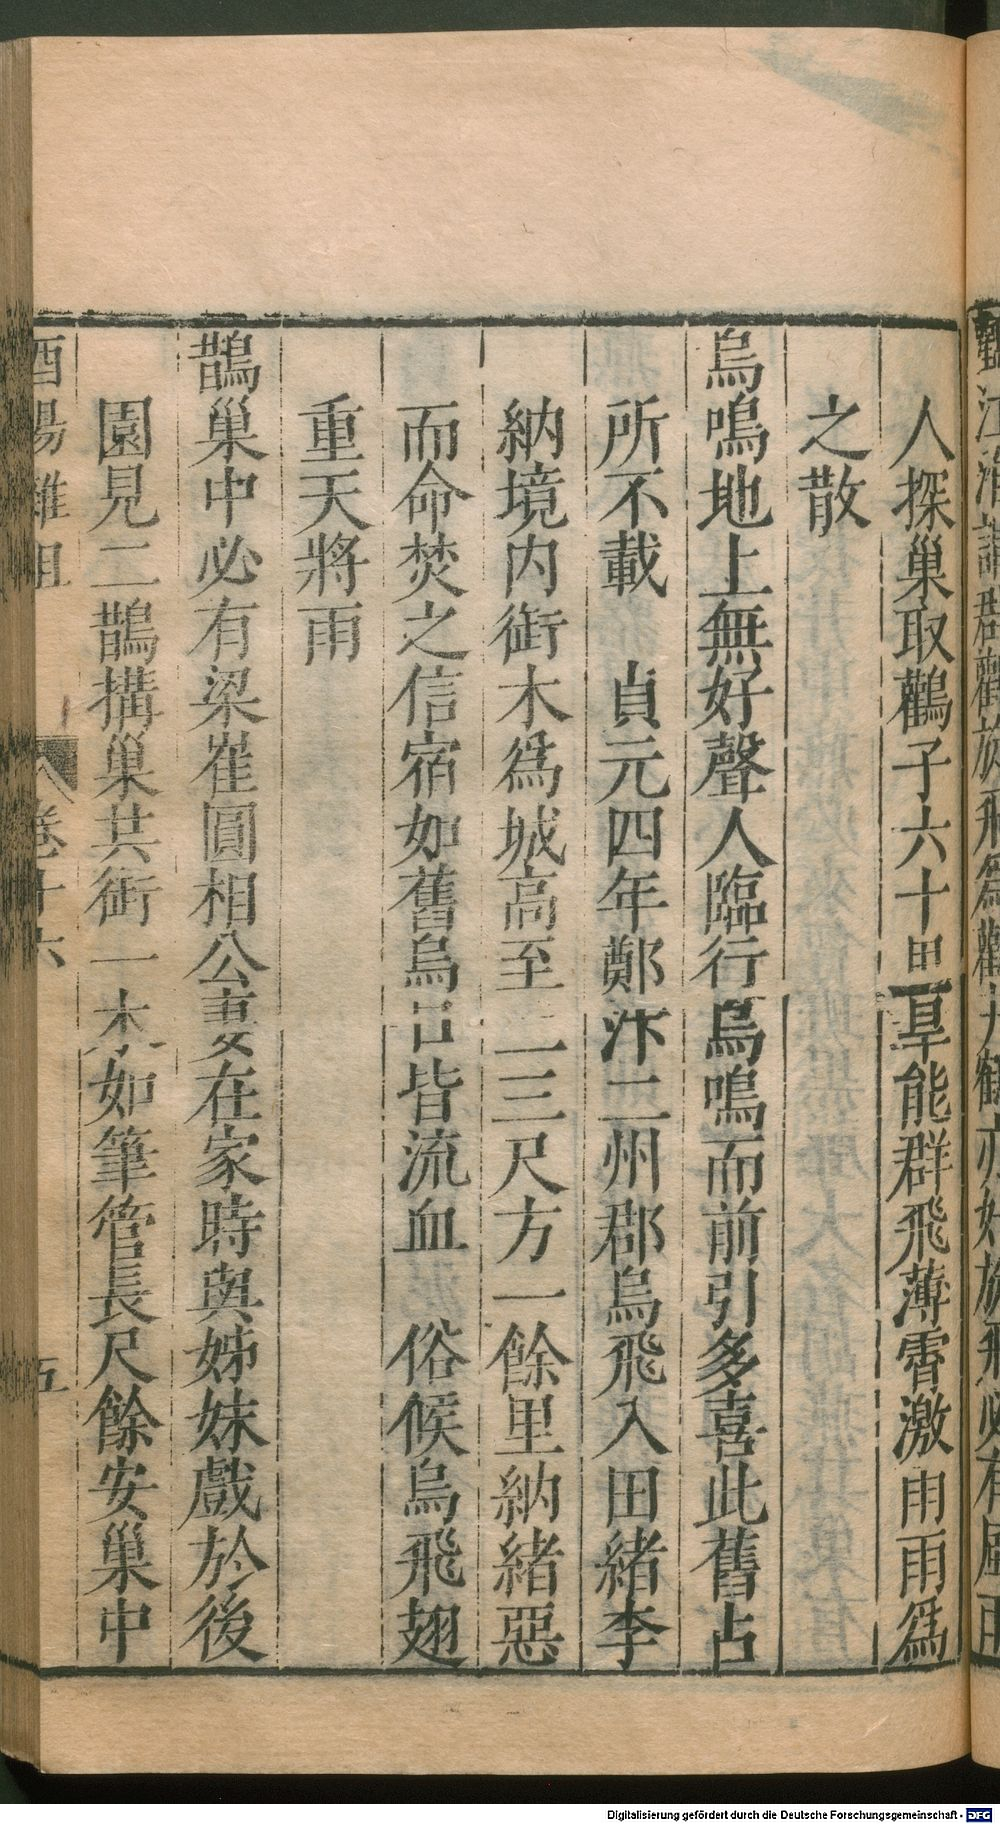 人探巢取鸛子六十里旱能群飛薄霄激雨雨爲
之散
烏鳴地上無好聲人臨行烏鳴而前引多喜此舊占
所不載　貞元四年鄭汴二州郡烏飛入田緒李
納境内銜木爲城高至二三尺方一餘里納緒惡
而命焚之信宿如舊烏口皆流血　俗候烏飛翅
重天將雨
鵲巢中必有梁崔圓相公妻在家時與姊妹戲於後
園見二鵲搆巢共銜一木如筆管長尺餘安巢中
酉陽雜俎　卷十六　五
Digitalisierung gefördert durch die Deutsche Forschungsgemeinschaft - DFG